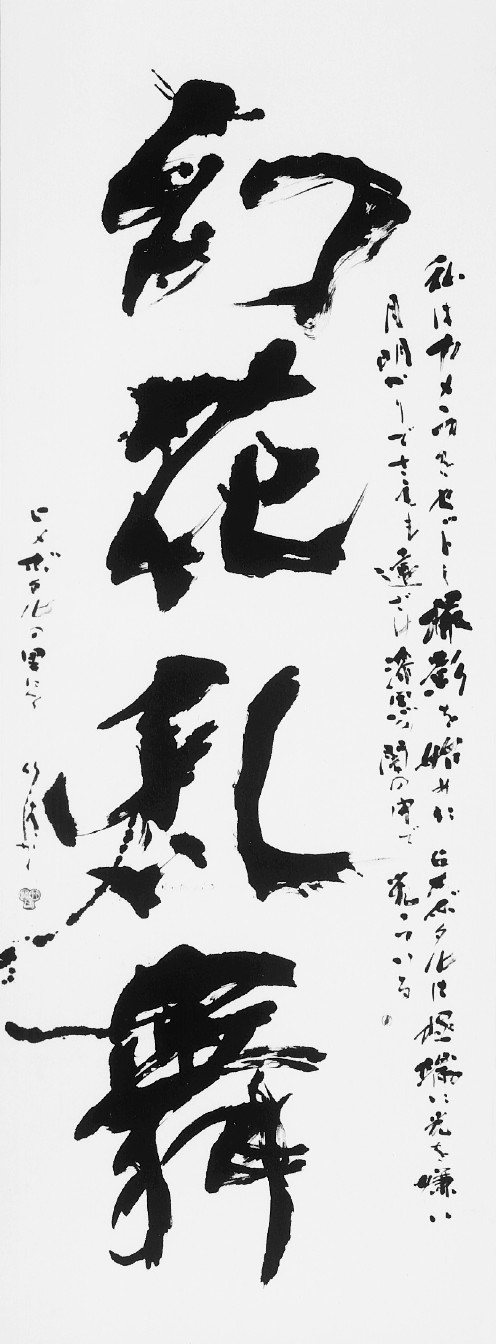 幻花乱舞
私はカメラをセットし撮影を始めた ヒメボタルは極端に光を嫌い
月明かりでさえも遠ざけ漆黒の闇の中で 光っている
ヒメボタルの里にて